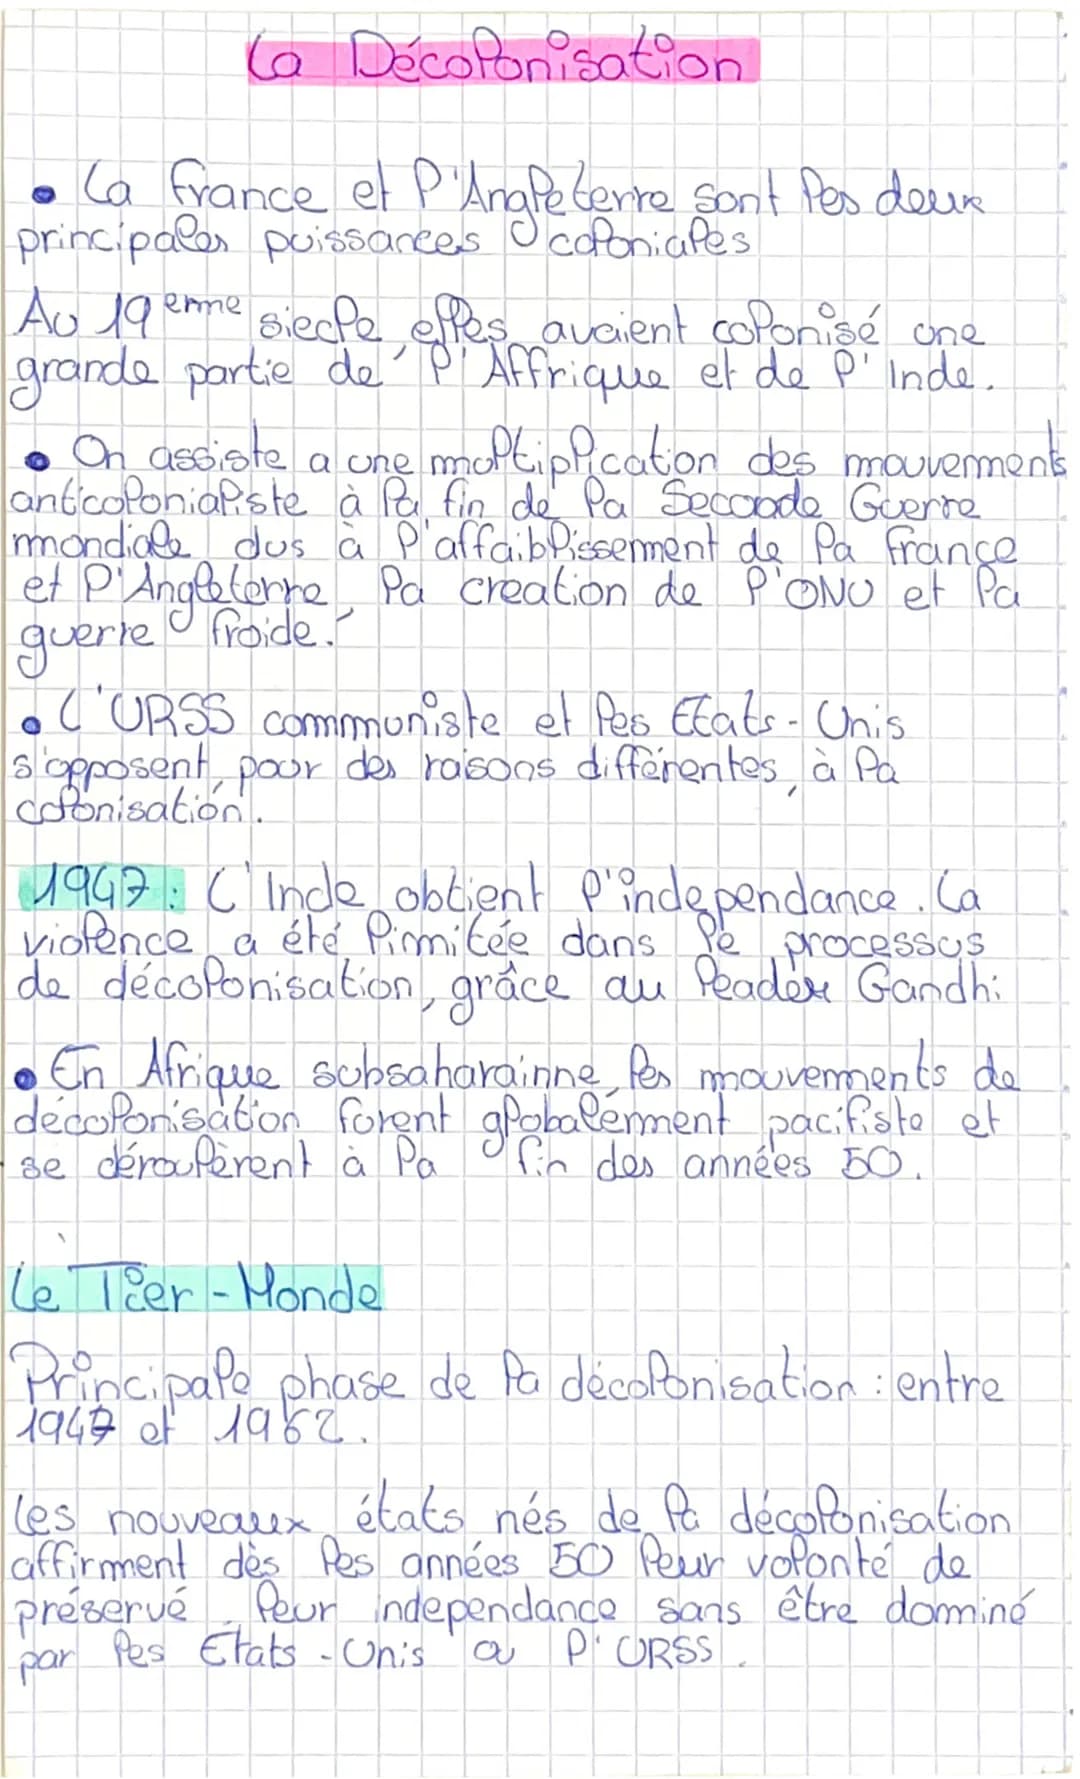 La Décolonisation
• La France et l'Angleterre sont les deux
principales puissances coloniales
Au 19 eme siecle, elles avaient colonisé une
grande partie de l'Affrique et de l'Inde.
• On assiste a une multiplication des mouvements
anticolonialiste à la fin de la Seconde Guerre
mondiale dus à l'affaiblissement de la France
et l'Angleterre, la creation de l'ONU et la
guerre froide.
• L'URSS communiste et les Etats-Unis
s'opposent, pour des raisons différentes, à la
colonisation.
1947: L'Inde obtient l'independance. La
violence a été limitée dans le processus
de décolonisation, grâce au leader Gandhi
• En Afrique subsaharainne, les mouvements de
décolonisation furent globalement pacifiste et
se déroulèrent à la fin des années 50.
Le Tier-Monde
Principale phase de la décolonisation : entre
1947 et 1962.
Les nouveaux états nés de la décolonisation
affirment dès les années 50 leur volonté de
préservé leur independance sans être dominé
par les Etats-Unis ou l'URSS.